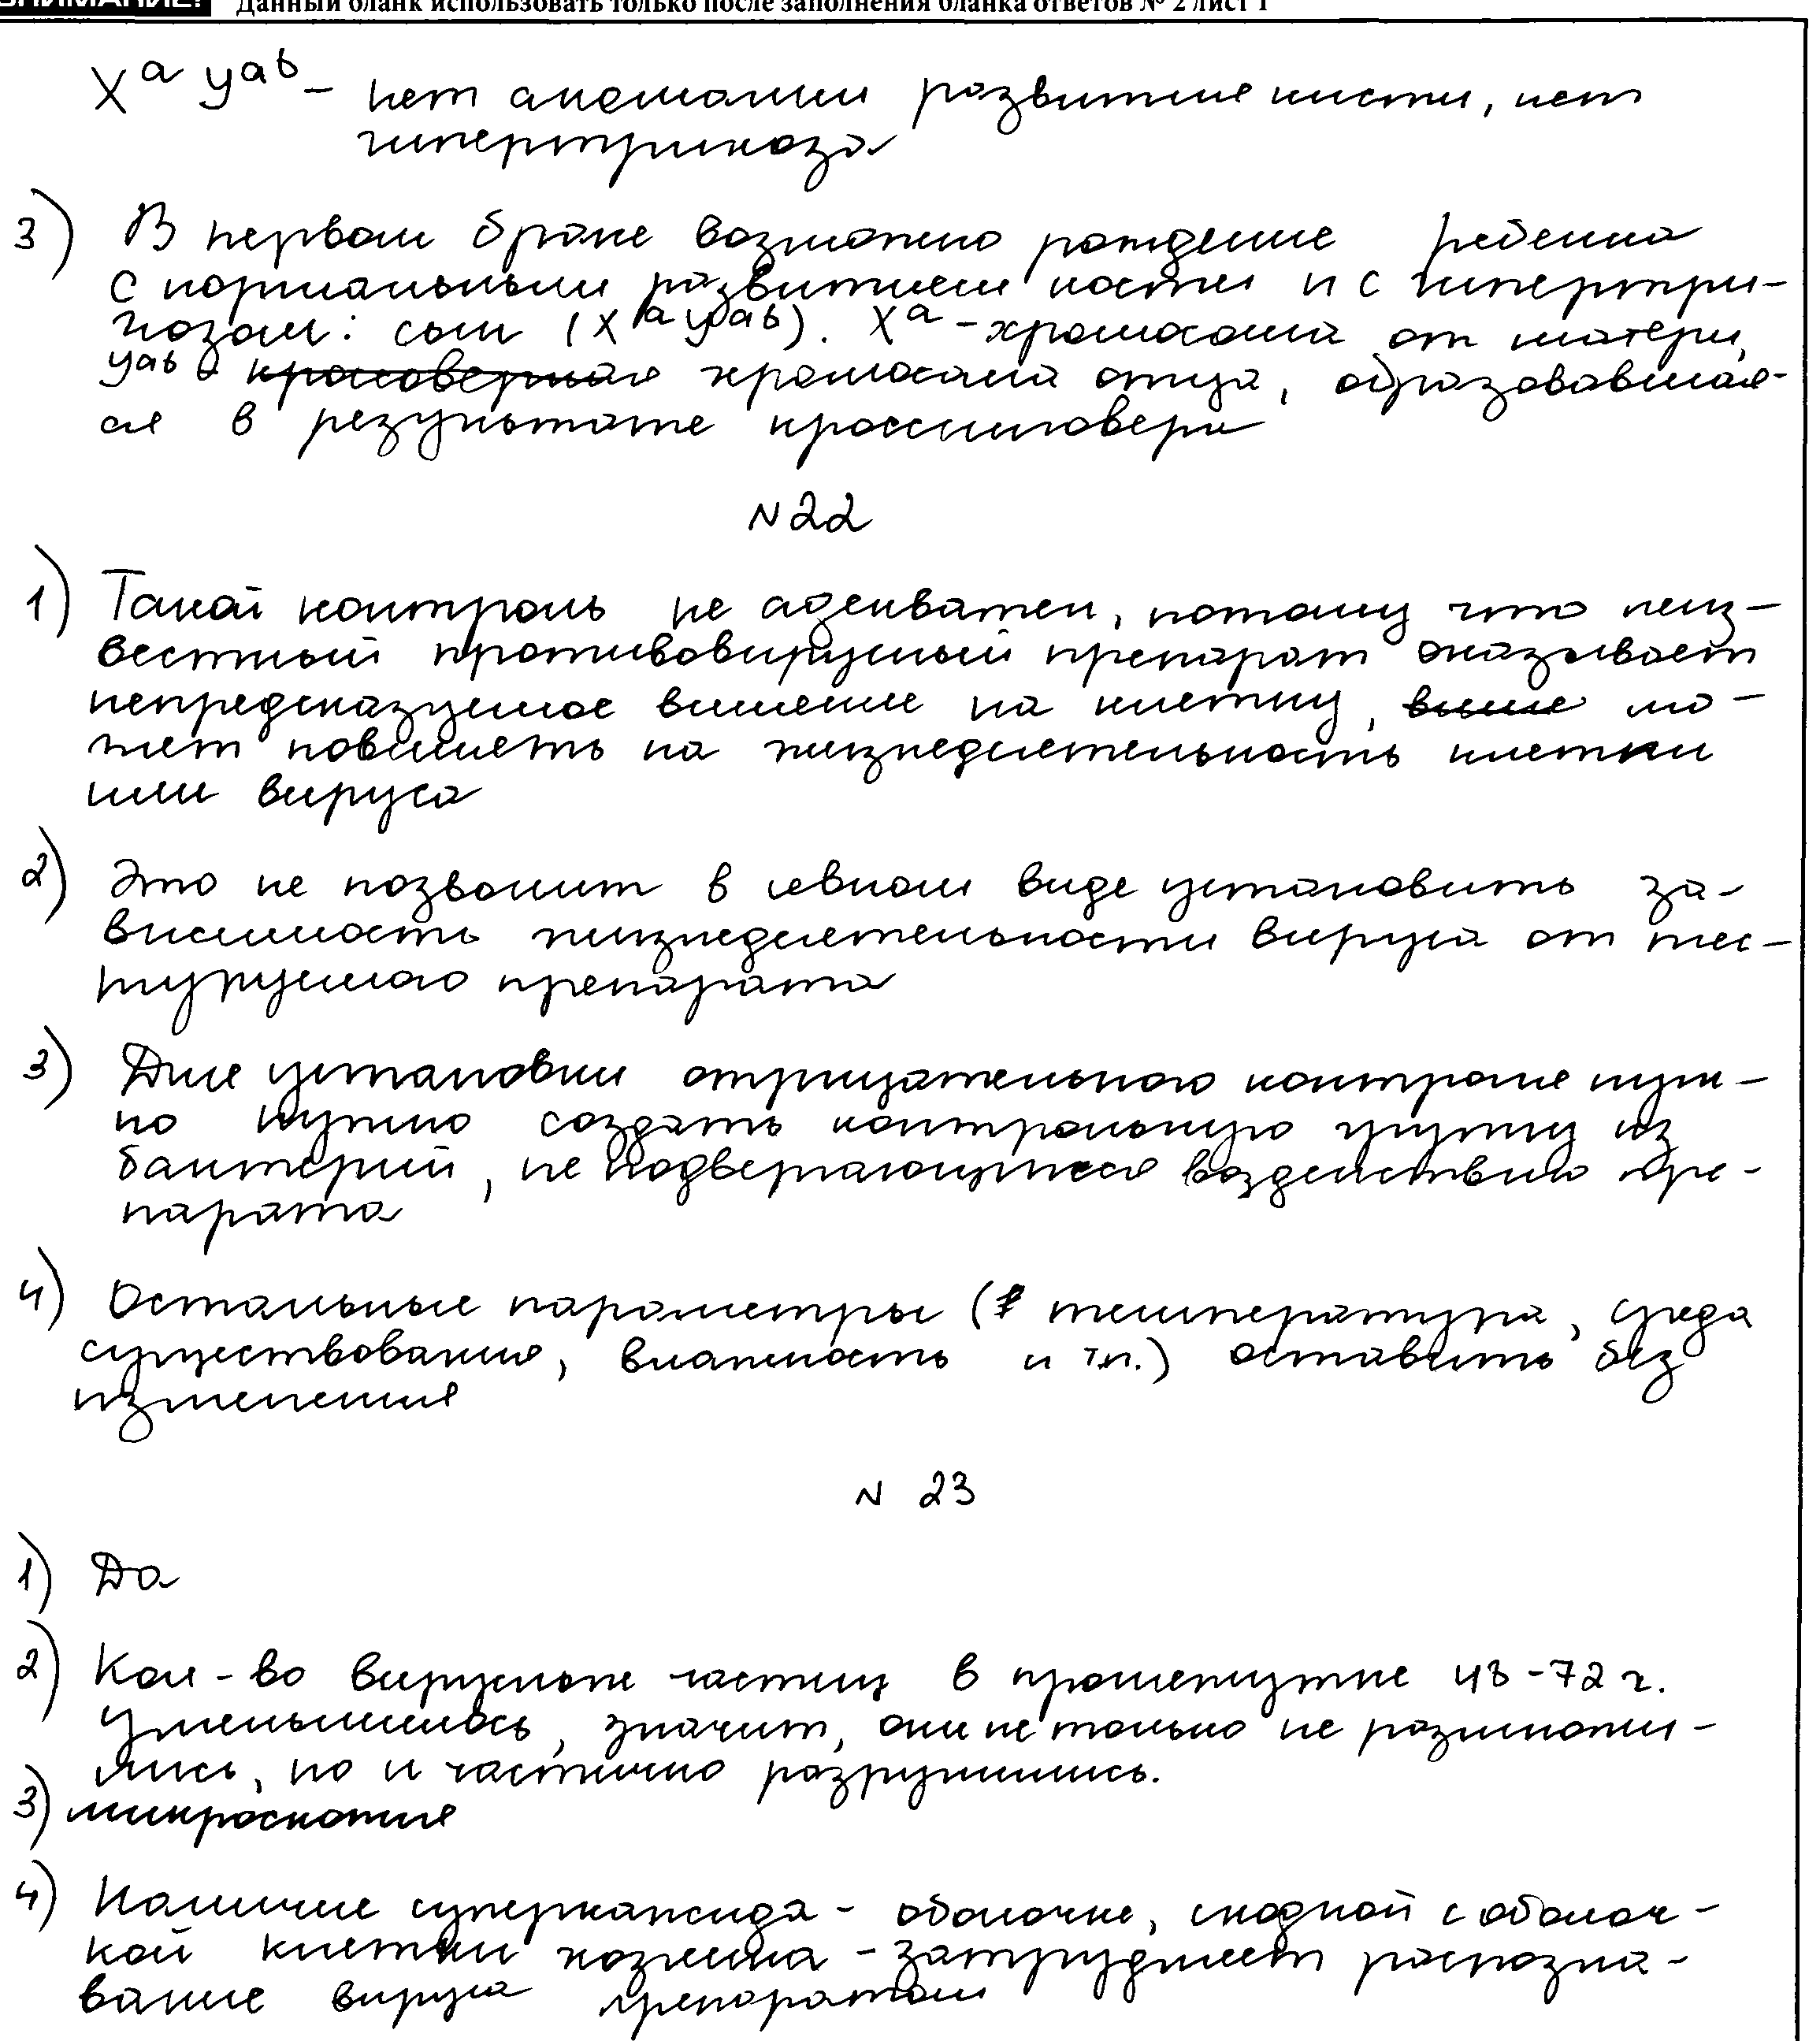 ВНИМАНИЕ! Данный бланк использовать только после заполнения бланка ответов № 2 лист 1
Xᵃ Yᵃᵇ – нет аномалии развития кисти, нет
гипертрихоза
3) В первом браке возможно рождение ребенка
с нормальным развитием кости и с гипертри-
хозом: сын (Xᵃ Yᵃᵇ). Xᵃ – хромосома от матери,
Yᵃᵇ – кроссоверная хромосома отца, образовавшая-
ся в результате кроссинговера
N 22
1) Такой контроль не адекватен, потому что неиз-
вестный противовирусный препарат оказывает
непредсказуемое влияние на клетку, влия мо-
жет повлиять на жизнедеятельность клетки
или вируса
2) Это не позволит в явном виде установить за-
висимость жизнедеятельности вируса от тес-
тируемого препарата
3) Для установки отрицательного контроля нуж-
но нужно создать контрольную группу из
бактерий, не подвергающихся воздействию пре-
парата
4) Остальные параметры (температура, среда
существования, влажность и т.п.) оставить без
изменения
N 23
1) Да
2) Кол-во вирусных частиц в промежутке 48-72 ч.
уменьшилось, значит, они не только не размножи-
лись, но и частично разрушились.
3) микроскопия
4) Наличие суперкапсида - оболочке, сходной с оболоч-
кой клетки хозяина - затрудняет распозна-
вание вируса препаратом